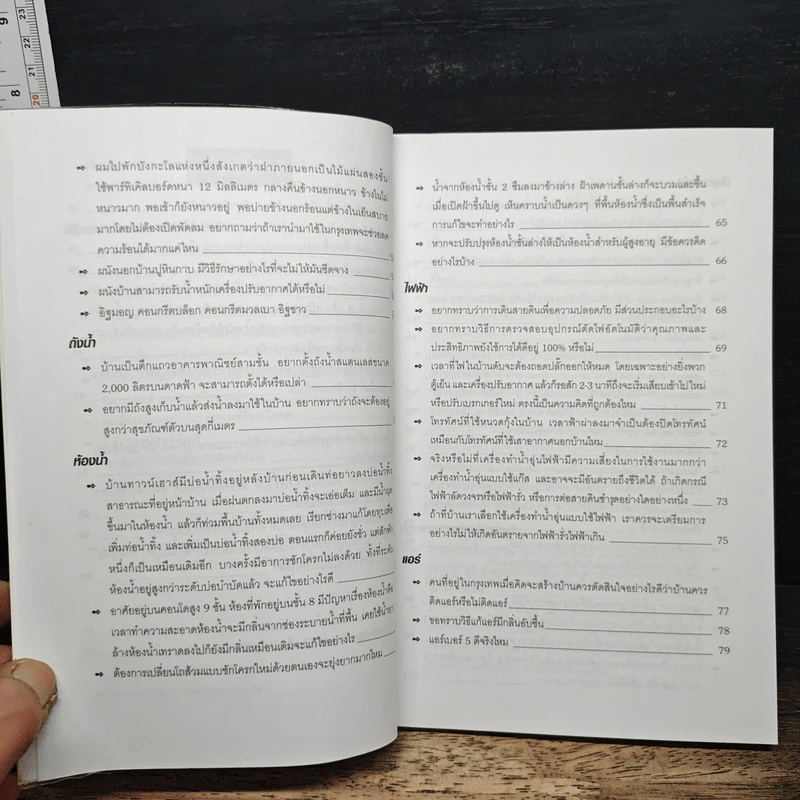 ผมไปพักบังกะโลแห่งหนึ่งสังเกตว่าฝาภายนอกเป็นไม้แผ่นสองชั้น
ใช้พาร์ทิเคิลบอร์ดหนา 12 มิลลิเมตร กลางคืนข้างนอกหนาว ข้างในไม่
หนาวมาก พอเช้าก็ยังหนาวอยู่ พอบ่ายข้างนอกร้อนแต่ข้างในเย็นสบาย
มากโดยไม่ต้องเปิดพัดลม อยากถามว่าถ้าเรานำมาใช้ในกรุงเทพจะช่วยลด
ความร้อนได้มากแค่ไหน
ผนังนอกบ้านปูหินกาบ มีวิธีรักษาอย่างไรที่จะไม่ให้มันซีดจาง
ผนังบ้านสามารถรับน้ำหนักเครื่องปรับอากาศได้หรือไม่
อิฐมอญ คอนกรีตบล็อก คอนกรีตมวลเบา อิฐขาว
ถังน้ำ
บ้านเป็นตึกแถวอาคารพาณิชย์สามชั้น อยากตั้งถังน้ำสแตนเลสขนาด
2,000 ลิตรบนดาดฟ้า จะสามารถตั้งได้หรือเปล่า
อยากมีถังสูงเก็บน้ำแล้วส่งน้ำลงมาใช้ในบ้าน อยากทราบว่าถังจะต้องอยู่
สูงกว่าสุขภัณฑ์ตัวบนสุดกี่เมตร
ห้องน้ำ
บ้านทาวน์เฮาส์มีบ่อน้ำทิ้งอยู่หลังบ้านก่อนเดินท่อยาวลงบ่อน้ำทิ้ง
สาธารณะที่อยู่หน้าบ้าน เมื่อฝนตกลงมาบ่อน้ำทิ้งจะเอ่อเต็ม และมีน้ำผุด
ขึ้นมาในห้องน้ำ แล้วก็ท่วมพื้นบ้านทั้งหมดเลย เรียกช่างมาแก้โดยทุบเพื่อ
เพิ่มท่อน้ำทิ้ง และเพิ่มเป็นบ่อน้ำทิ้งสองบ่อ ตอนแรกก็ค่อยยังชั่ว แต่สักพัก
หนึ่งก็เป็นเหมือนเดิมอีก บางครั้งมีอาการชักโครกไม่ลงด้วย ทั้งที่ระดับ
ห้องน้ำอยู่สูงกว่าระดับบ่อบำบัดแล้ว จะแก้ไขอย่างไรดี
อาศัยอยู่บนคอนโดสูง 9 ชั้น ห้องที่พักอยู่บนชั้น 8 มีปัญหาเรื่องห้องน้ำคือ
เวลาทำความสะอาดห้องน้ำจะมีกลิ่นจากช่องระบายน้ำที่พื้น เคยใช้น้ำยา
ล้างห้องน้ำเทราดลงไปก็ยังมีกลิ่นเหมือนเดิมจะแก้ไขอย่างไร
ต้องการเปลี่ยนโถส้วมแบบชักโครกใหม่ด้วยตนเองจะยุ่งยากมากไหม
น้ำจากห้องน้ำชั้น 2 ซึมลงมาข้างล่าง ฝ้าเพดานชั้นล่างก็จะบวมและชื้น
เมื่อเปิดฝ้าขึ้นไปดู เห็นคราบน้ำเป็นดวงๆ ที่พื้นห้องน้ำซึ่งเป็นพื้นสำเร็จ
การแก้ไขจะทำอย่างไร 65
หากจะปรับปรุงห้องน้ำชั้นล่างให้เป็นห้องน้ำสำหรับผู้สูงอายุ มีข้อควรคิด
อย่างไรบ้าง 66
ไฟฟ้า
อยากทราบว่าการเดินสายดินเพื่อความปลอดภัย มีส่วนประกอบอะไรบ้าง 68
อยากทราบวิธีการตรวจสอบอุปกรณ์ตัดไฟอัตโนมัติว่าคุณภาพและ
ประสิทธิภาพยังใช้การได้ดีอยู่ 100% หรือไม่ 69
เวลาที่ไฟในบ้านดับจะต้องถอดปลั๊กออกให้หมด โดยเฉพาะอย่างยิ่งพวก
ตู้เย็น และเครื่องปรับอากาศ แล้วก็รอสัก 2-3 นาทีถึงจะเริ่มเสียบเข้าไปใหม่
หรือปรับเบรกเกอร์ใหม่ ตรงนี้เป็นความคิดที่ถูกต้องไหม 71
โทรทัศน์ที่ใช้หนวดกุ้งในบ้าน เวลาฟ้าผ่าลงมาจำเป็นต้องปิดโทรทัศน์
เหมือนกับโทรทัศน์ที่ใช้เสาอากาศนอกบ้านไหม 72
จริงหรือไม่ที่เครื่องทำน้ำอุ่นไฟฟ้ามีความเสี่ยงในการใช้งานมากกว่า
เครื่องทำน้ำอุ่นแบบใช้แก๊ส และอาจจะมีอันตรายถึงชีวิตได้ ถ้าเกิดกรณี
ไฟฟ้าลัดวงจรหรือไฟฟ้ารั่ว หรือการต่อสายดินชำรุดอย่างใดอย่างหนึ่ง 73
ถ้าที่บ้านเราเลือกใช้เครื่องทำน้ำอุ่นแบบใช้ไฟฟ้า เราควรจะเตรียมการ
อย่างไรไม่ให้เกิดอันตรายจากไฟฟ้ารั่วไฟฟ้าเกิน 75
แอร์
คนที่อยู่ในกรุงเทพเมื่อคิดจะสร้างบ้านควรตัดสินใจอย่างไรดีว่าบ้านควร
ติดแอร์หรือไม่ติดแอร์ 77
ขอทราบวิธีแก้แอร์มีกลิ่นอับชื้น 78
แอร์เบอร์ 5 ดีจริงไหม 79